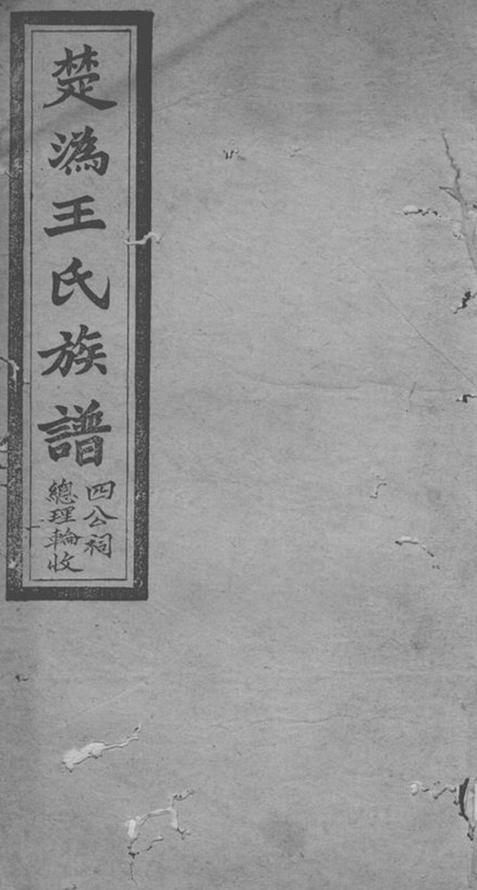 楚溈王氏族譜
四公祠
總理輪收